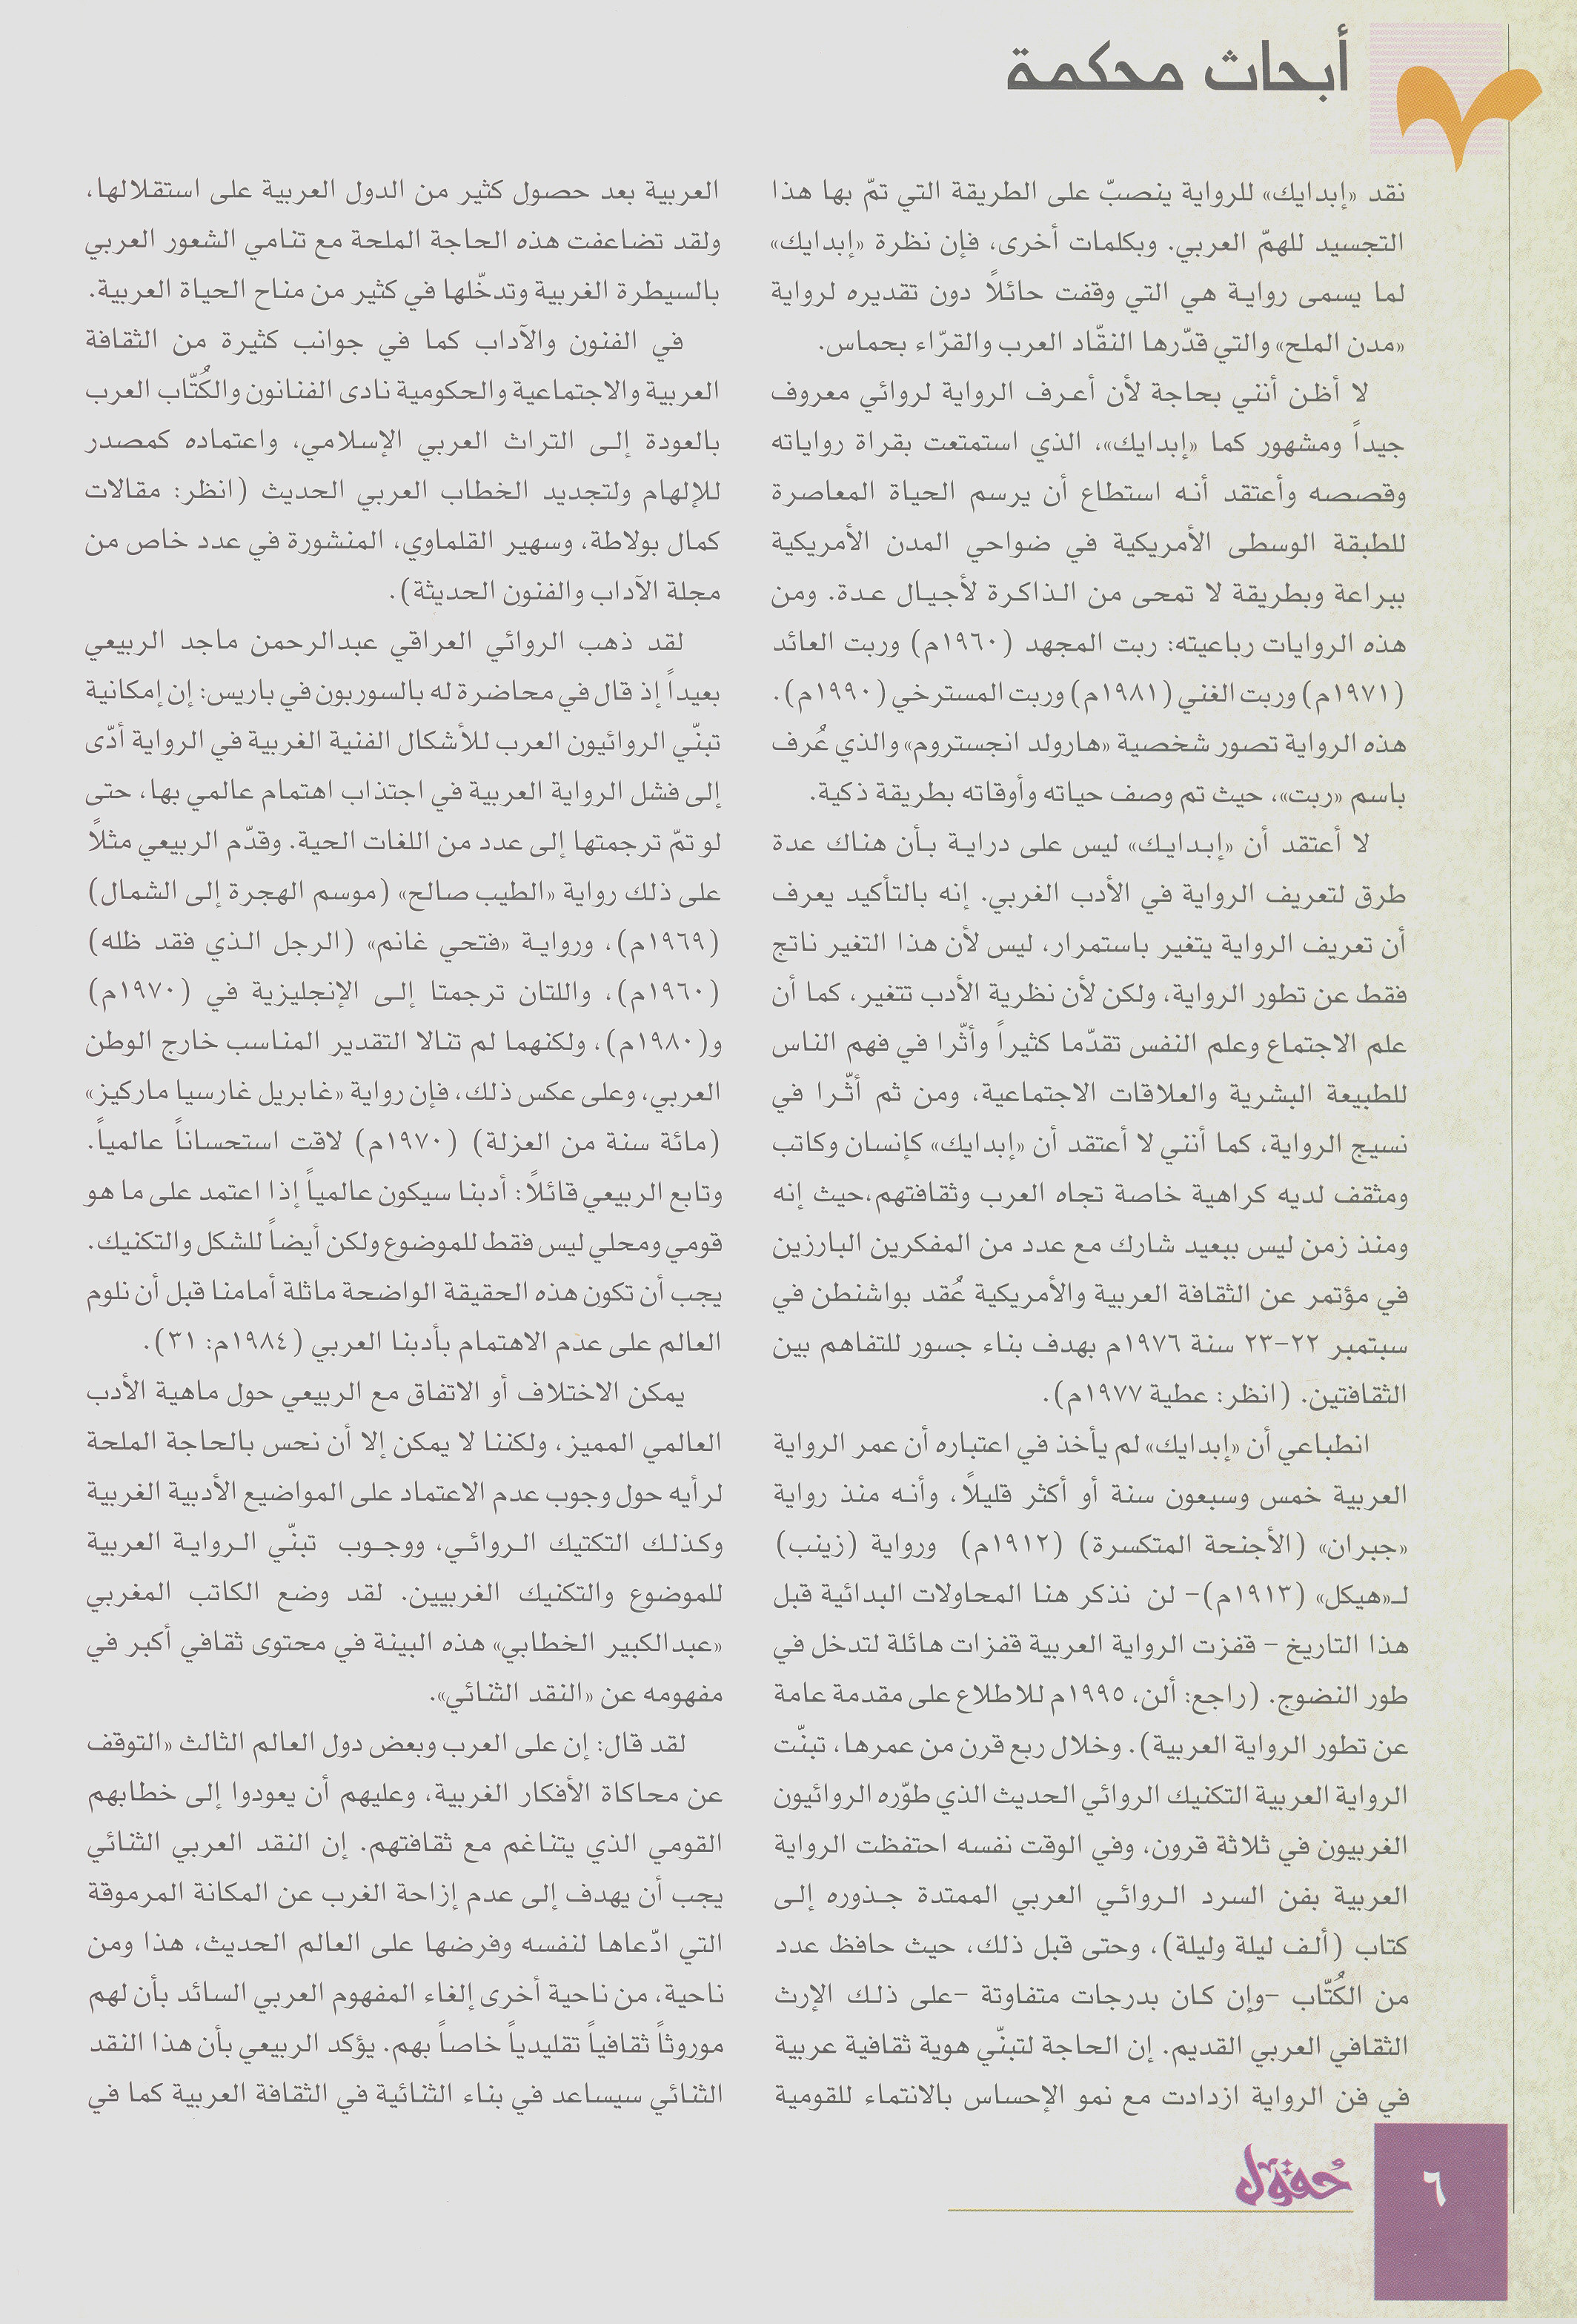 أبحاث محكمة
نقد «إبدايك» للرواية ينصبّ على الطريقة التي تمّ بها هذا
التجسيد للهمّ العربي. وبكلمات أخرى، فإن نظرة «إبدايك»
لما يسمى رواية هي التي وقفت حائلاً دون تقديره لرواية
«مدن الملح» والتي قدّرها النقّاد العرب والقرّاء بحماس.
لا أظن أنني بحاجة لأن أعرف الرواية لروائي معروف
جيداً ومشهور كما «إبدايك»، الذي استمتعت بقراة رواياته
وقصصه وأعتقد أنه استطاع أن يرسم الحياة المعاصرة
للطبقة الوسطى الأمريكية في ضواحي المدن الأمريكية
ببراعة وبطريقة لا تمحى من الذاكرة لأجيال عدة. ومن
هذه الروايات رباعيته: ربت المجهد (١٩٦٠م) وربت العائد
(١٩٧١م) وربت الغني (١٩٨١م) وربت المسترخي (١٩٩٠م).
هذه الرواية تصور شخصية «هارولد انجستروم» والذي عُرف
باسم «ربت»، حيث تم وصف حياته وأوقاته بطريقة ذكية.
لا أعتقد أن «إبدايك» ليس على دراية بأن هناك عدة
طرق لتعريف الرواية في الأدب الغربي. إنه بالتأكيد يعرف
أن تعريف الرواية يتغير باستمرار، ليس لأن هذا التغير ناتج
فقط عن تطور الرواية، ولكن لأن نظرية الأدب تتغير، كما أن
علم الاجتماع وعلم النفس تقدّما كثيراً وأثّرا في فهم الناس
للطبيعة البشرية والعلاقات الاجتماعية، ومن ثم أثّرا في
نسيج الرواية، كما أنني لا أعتقد أن «إبدايك» كإنسان وكاتب
ومثقف لديه كراهية خاصة تجاه العرب وثقافتهم،حيث إنه
ومنذ زمن ليس ببعيد شارك مع عدد من المفكرين البارزين
في مؤتمر عن الثقافة العربية والأمريكية عُقد بواشنطن في
سبتمبر ٢٢-٢٣ سنة ١٩٧٦م بهدف بناء جسور للتفاهم بين
الثقافتين. (انظر: عطية ١٩٧٧م).
انطباعي أن «إبدايك» لم يأخذ في اعتباره أن عمر الرواية
العربية خمس وسبعون سنة أو أكثر قليلاً، وأنه منذ رواية
«جبران» (الأجنحة المتكسرة) (١٩١٢م) ورواية (زينب)
لـ«هيكل» (١٩١٣م)- لن نذكر هنا المحاولات البدائية قبل
هذا التاريخ - قفزت الرواية العربية قفزات هائلة لتدخل في
طور النضوج. (راجع: ألن، ١٩٩٥م للاطلاع على مقدمة عامة
عن تطور الرواية العربية). وخلال ربع قرن من عمرها، تبنّت
الرواية العربية التكنيك الروائي الحديث الذي طوّره الروائيون
الغربيون في ثلاثة قرون، وفي الوقت نفسه احتفظت الرواية
العربية بفن السرد الروائي العربي الممتدة جذوره إلى
كتاب (ألف ليلة وليلة)، وحتى قبل ذلك، حيث حافظ عدد
من الكُتّاب -وإن كان بدرجات متفاوتة -على ذلك الإرث
الثقافي العربي القديم. إن الحاجة لتبنّي هوية ثقافية عربية
في فن الرواية ازدادت مع نمو الإحساس بالانتماء للقومية
العربية بعد حصول كثير من الدول العربية على استقلالها،
ولقد تضاعفت هذه الحاجة الملحة مع تنامي الشعور العربي
بالسيطرة الغربية وتدخّلها في كثير من مناح الحياة العربية.
في الفنون والآداب كما في جوانب كثيرة من الثقافة
العربية والاجتماعية والحكومية نادى الفنانون والكُتّاب العرب
بالعودة إلى التراث العربي الإسلامي، واعتماده كمصدر
للإلهام ولتجديد الخطاب العربي الحديث (انظر: مقالات
كمال بولاطة، وسهير القلماوي، المنشورة في عدد خاص من
مجلة الآداب والفنون الحديثة).
لقد ذهب الروائي العراقي عبدالرحمن ماجد الربيعي
بعيداً إذ قال في محاضرة له بالسوربون في باريس: إن إمكانية
تبنّي الروائيون العرب للأشكال الفنية الغربية في الرواية أدّى
إلى فشل الرواية العربية في اجتذاب اهتمام عالمي بها، حتى
لو تمّ ترجمتها إلى عدد من اللغات الحية. وقدّم الربيعي مثلاً
على ذلك رواية «الطيب صالح» (موسم الهجرة إلى الشمال)
(١٩٦٩م)، ورواية «فتحي غانم» (الرجل الذي فقد ظله)
(١٩٦٠م)، واللتان ترجمتا إلى الإنجليزية في (١٩٧٠م)
و(١٩٨٠م)، ولكنهما لم تنالا التقدير المناسب خارج الوطن
العربي، وعلى عكس ذلك، فإن رواية «غابريل غارسيا ماركيز»
(مائة سنة من العزلة) (١٩٧٠م) لاقت استحساناً عالمياً.
وتابع الربيعي قائلاً: أدبنا سيكون عالمياً إذا اعتمد على ما هو
قومي ومحلي ليس فقط للموضوع ولكن أيضاً للشكل والتكنيك.
يجب أن تكون هذه الحقيقة الواضحة ماثلة أمامنا قبل أن نلوم
العالم على عدم الاهتمام بأدبنا العربي (١٩٨٤م: ٣١).
يمكن الاختلاف أو الاتفاق مع الربيعي حول ماهية الأدب
العالمي المميز، ولكننا لا يمكن إلا أن نحس بالحاجة الملحة
لرأيه حول وجوب عدم الاعتماد على المواضيع الأدبية الغربية
وكذلك التكتيك الروائي، ووجوب تبنّي الرواية العربية
للموضوع والتكنيك الغربيين. لقد وضع الكاتب المغربي
«عبدالكبير الخطابي» هذه البينة في محتوى ثقافي أكبر في
مفهومه عن «النقد الثنائي».
لقد قال: إن على العرب وبعض دول العالم الثالث «التوقف
عن محاكاة الأفكار الغربية، وعليهم أن يعودوا إلى خطابهم
القومي الذي يتناغم مع ثقافتهم. إن النقد العربي الثنائي
يجب أن يهدف إلى عدم إزاحة الغرب عن المكانة المرموقة
التي ادّعاها لنفسه وفرضها على العالم الحديث، هذا ومن
ناحية، من ناحية أخرى إلغاء المفهوم العربي السائد بأن لهم
موروثاً ثقافياً تقليدياً خاصاً بهم. يؤكد الربيعي بأن هذا النقد
الثنائي سيساعد في بناء الثنائية في الثقافة العربية كما في
حُقول
٦